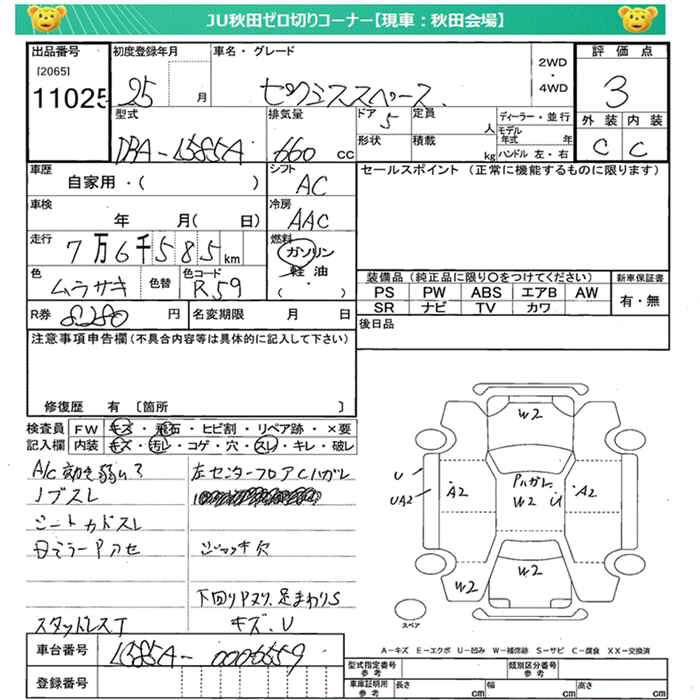 JU秋田ゼロ切りコーナー【現車：秋田会場】
出品番号
[2065]
11025
初度登録年月
25 月
車名・グレード
ピクシススペース
2WD
・
4WD
評価点
3
外装 内装
C C
型式
DBA-L585A
排気量
660 CC
ドア 5
定員 人
形状
積載 kg
ディーラー・並行
モデル年式 年
ハンドル 左・右
車歴
自家用・( )
シフト
AC
セールスポイント (正常に機能するものに限ります)
車検
年 月( 日)
冷房
AAC
走行
7万6千585km
燃料
ガソリン
軽油
・
( )
色
ムラサキ
色替
色コード
R59
装備品 (純正品に限り○をつけてください)
新車保証書
PS PW ABS エアB AW
SR ナビ TV カワ
有・無
R券 8280 円
名変期限 月 日
後日品
注意事項申告欄(不具合内容等は具体的に記入して下さい)
修復歴 有 〔箇所 〕
検査員
記入欄
FW キズ・飛石・ヒビ割・リペア跡・×要
内装 キズ・汚レ・コゲ・穴・スレ・キレ・破レ
A/C効き弱い?
ノブスレ
シートカドスレ
スタッドレスT
左センターフロアCハガレ
ジャッキ欠
下回りPヌリ、足まわりS
キズ、U
W2
Pハガレ
W2 U
U
UA2
A2
A2
W2
W2
W2
スペア
A－キズ E－エクボ U－凹み W－補修跡 S－サビ C－腐食 XX－交換済
車台番号
L585A-0006659
登録番号
型式指定番号
参考
類別区分番号
参考
車庫証明用
参考
長さ cm
幅 cm
高さ cm